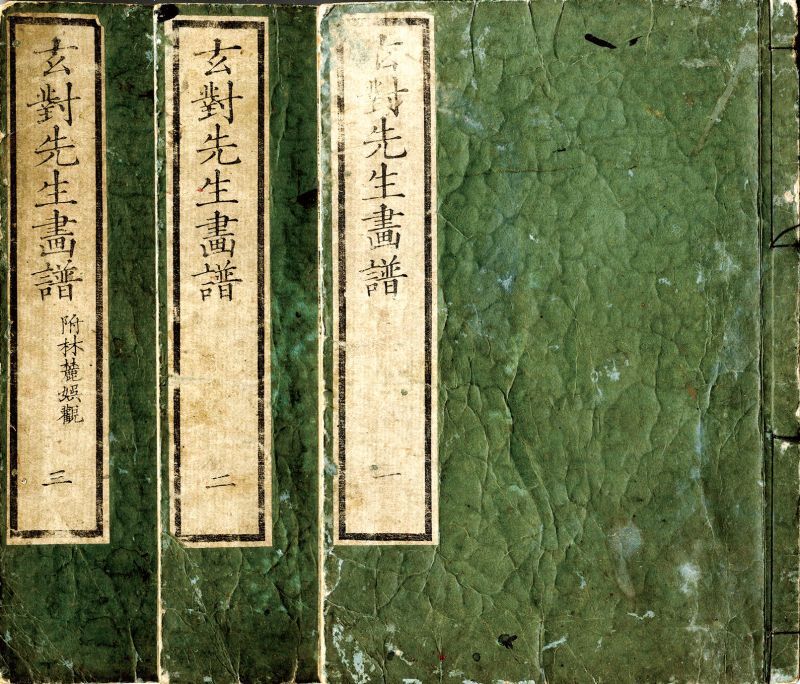 玄對先生畵譜
一
玄對先生畵譜
二
玄對先生畵譜
附林麓娯觀
三